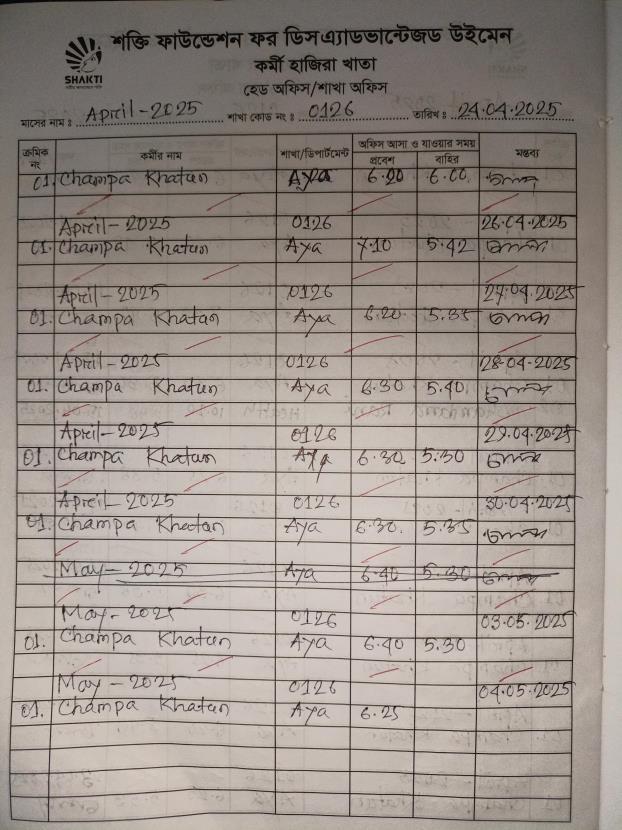 শক্তি ফাউন্ডেশন ফর ডিসএ্যাডভান্টেজড উইমেন
SHAKTI
কর্মী হাজিরা খাতা
হেড অফিস/শাখা অফিস
মাসের নাম ঃ April-2025 শাখা কোড নং ঃ 0126 তারিখ ঃ 24.04.2025
ক্রমিক নং কর্মীর নাম শাখা/ডিপার্টমেন্ট অফিস আসা ও যাওয়ার সময় মন্তব্য
প্রবেশ বাহির
01. Champa Khatun Aya 6.20 6.00
April-2025 0126 26.04.2025
01. Champa Khatun Aya 7.10 5.42
April-2025 0126 27.04.2025
01. Champa Khatun Aya 6.20 5.35
April-2025 0126 28.04.2025
01. Champa Khatun Aya 6.30 5.40
April-2025 0126 29.04.2025
01. Champa Khatun Aya 6.30 5.30
April-2025 0126 30.04.2025
01. Champa Khatun Aya 6.30. 5.35
May-2025 Aya 6.40 5.30
May-2025 0126 03.05.2025
01. Champa Khatun Aya 6.40 5.30
May-2025 0126 04.05.2025
01. Champa Khatun Aya 6.25